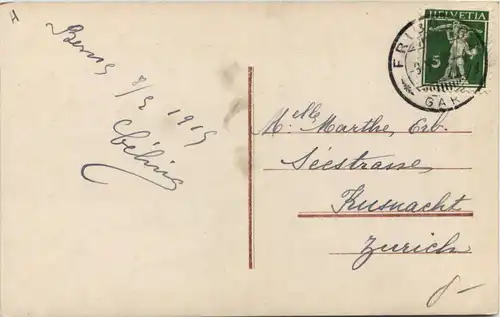 A
Berne 8/3 1915
Céline
HELVETIA
5
FRI
GAR
Mlle Marthe, Erb.
Séestrasse,
Kusnacht
Zurich
8-